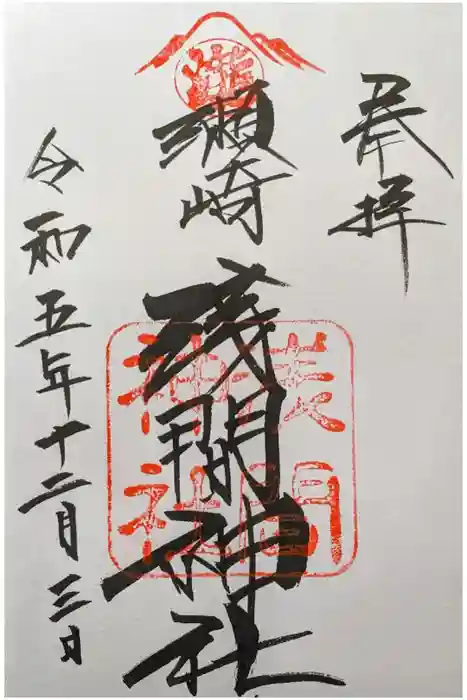 奉拝
瀬崎
浅間神社
令和五年十二月三日
浅間
神社